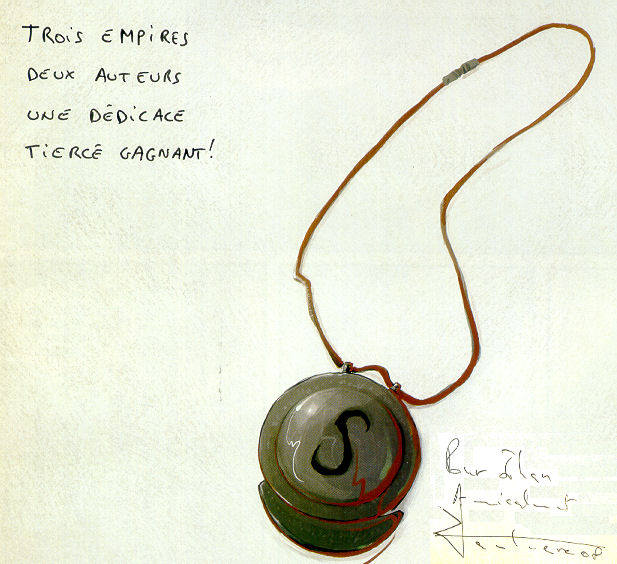 TROIS EMPIRES
DEUX AUTEURS
UNE DÉDICACE
TIERCÉ GAGNANT!
S
Pour
Amicalement